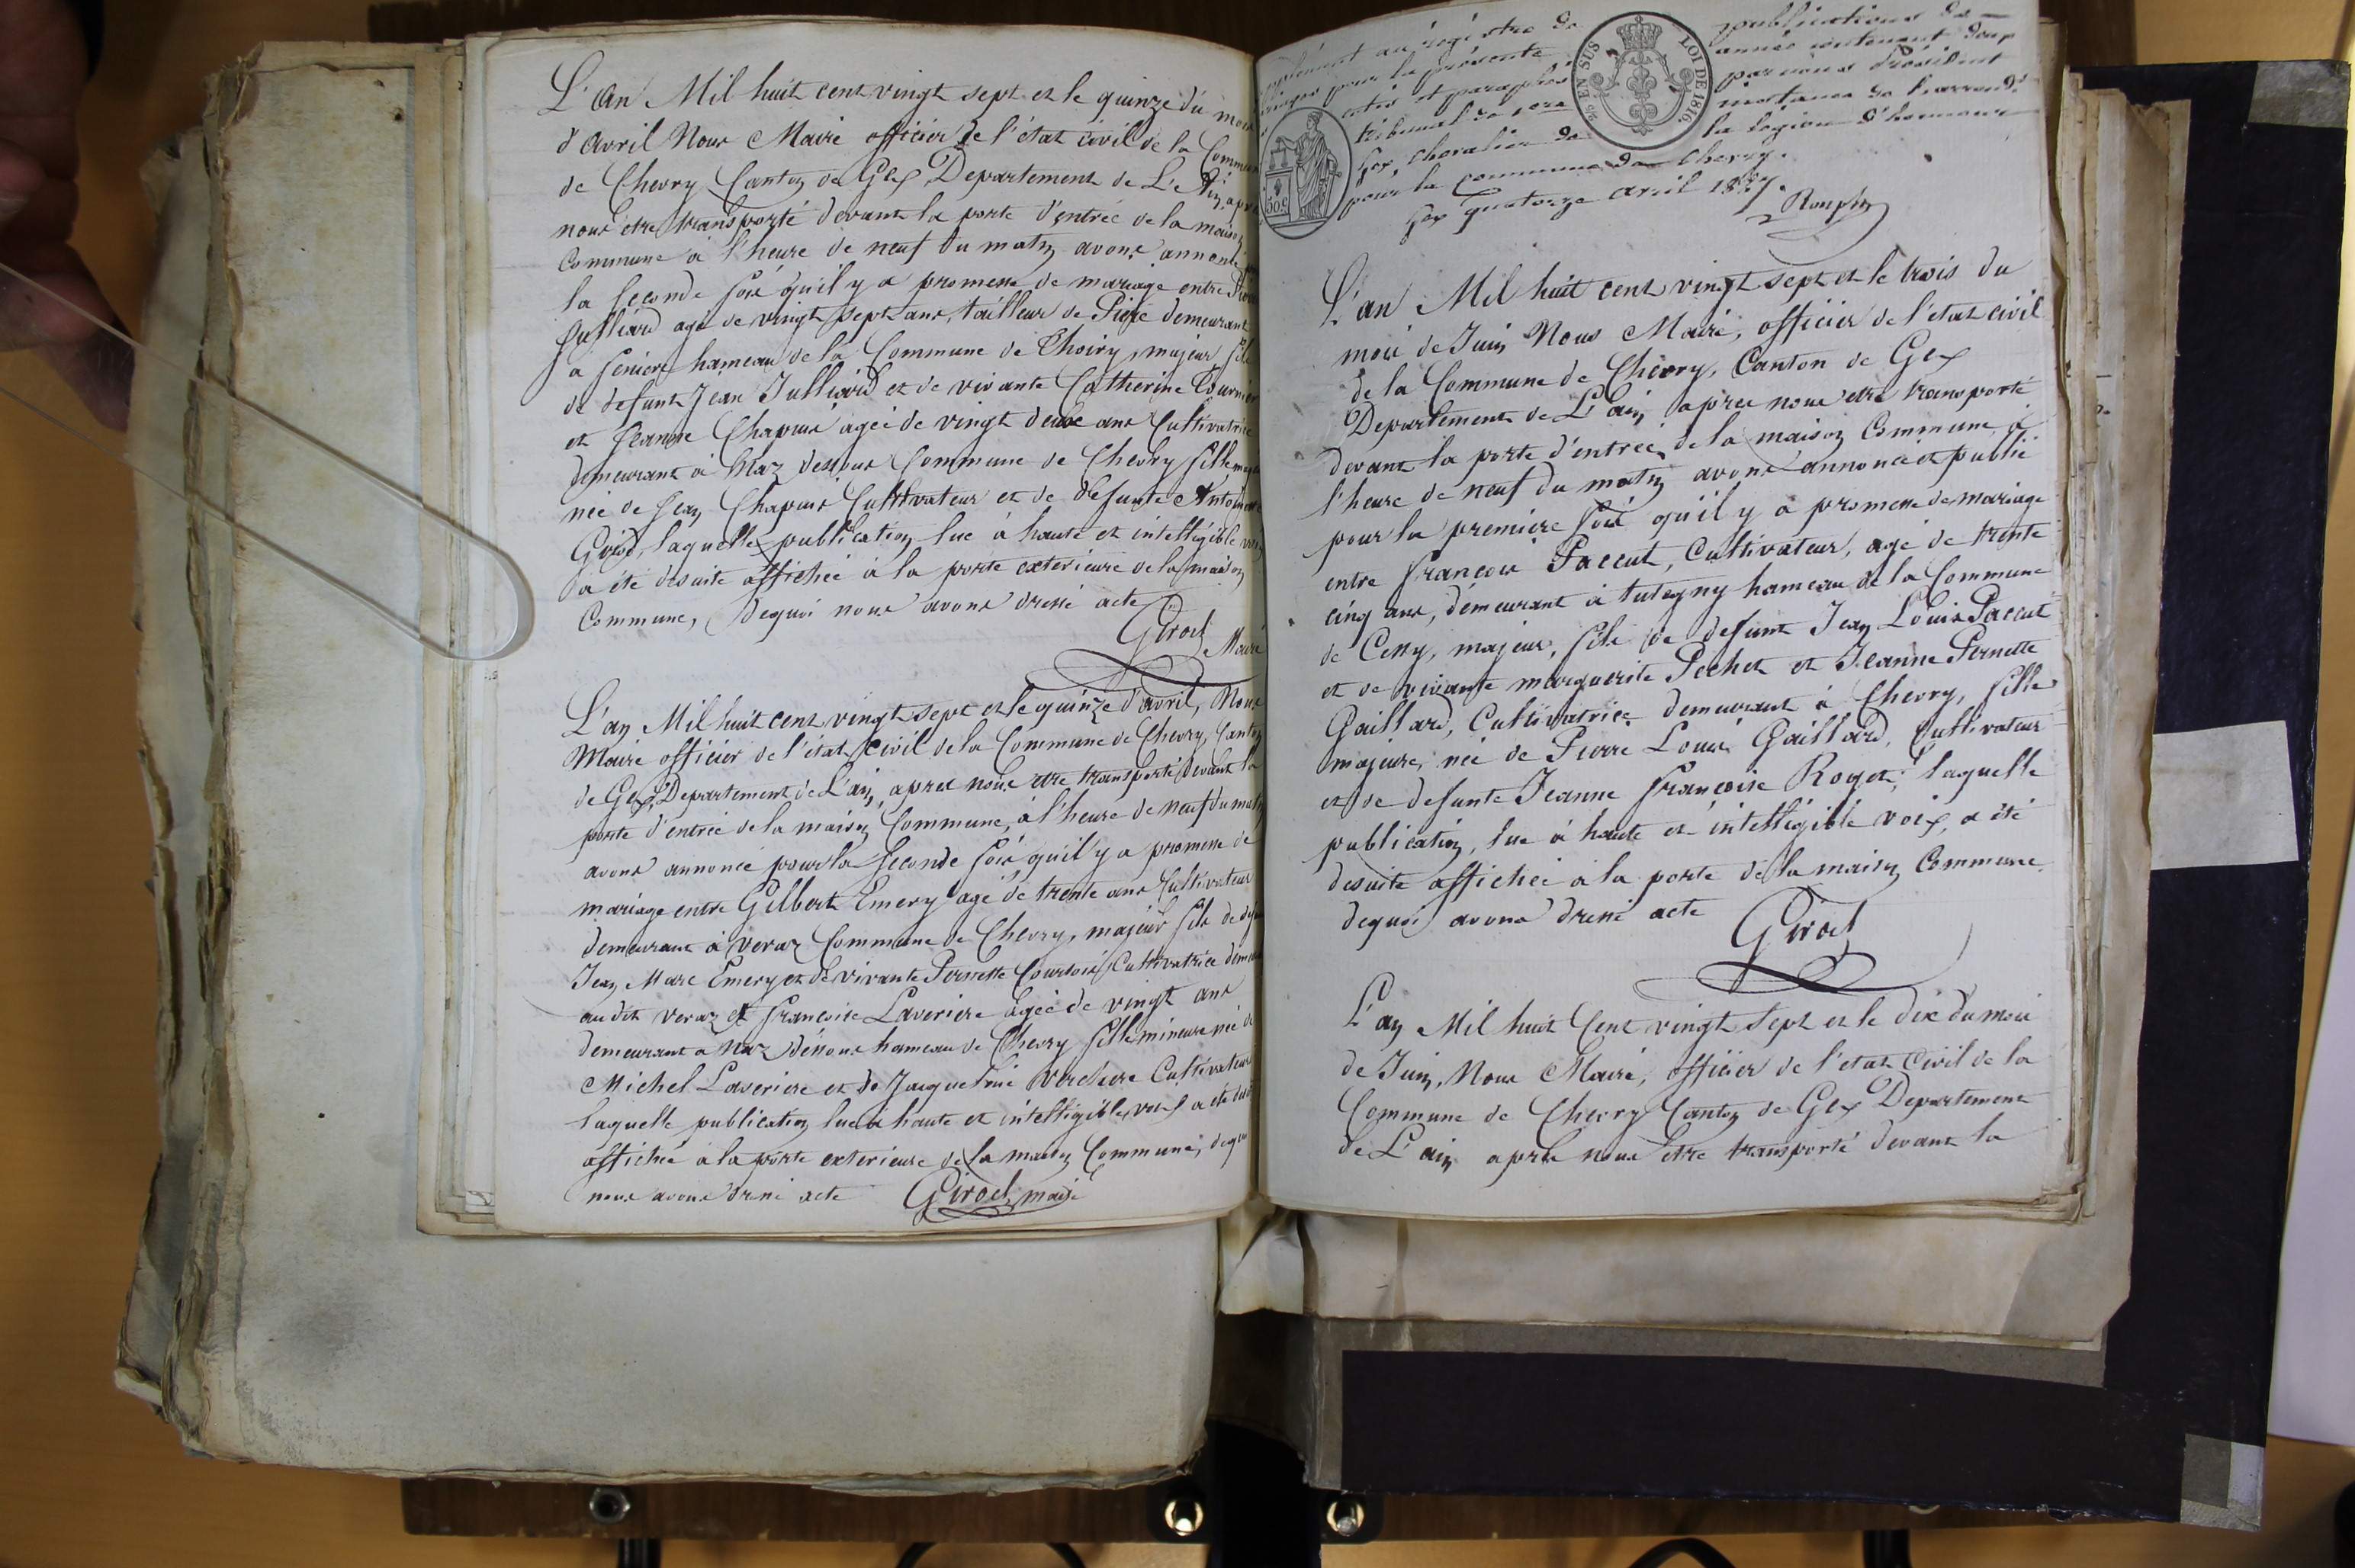 L'an Mil huit cent vingt sept et le quinze du mois
d'avril Nous Maire officier de l'état civil de la Commune
de Chevry Canton de Gex Departement de L'Ain, après
nous être transporté devant la porte d'entrée de la maison
Commune à l'heure de neuf du matin avons annoncé
la seconde fois qu'il y a promesse de mariage entre
Julliard agé de vingt sept ans, tailleur de Piere demeurant
à hameau de la Commune de Thoiry, majeur, fils
de defunt Jean Julliard et de vivante Catherine Tournier
et Jeanne Chapuis agée de vingt deux ans Cultivatrice
demeurant à Naz dessous Commune de Chevry fille
née de Jean Chapuis Cultivateur et de defunte Antoinette
Girod, laquelle publication lue à haute et intelligible voix
a été desuite affichée à la porte exterieure de la maison
Commune, dequoi nous avons dressé acte
Girod Maire
L'an Mil huit cent vingt sept et le quinze d'avril, Nous
Maire officier de l'état civil de la Commune de Chevry, Canton
de Gex, Departement de L'ain, apres nous etre transporté devant la
porte d'entrée de la maison Commune, à l'heure de neuf du matin
avons annoncé pour la seconde fois qu'il y a promesse de
mariage entre Gilbert Emery agé de trente ans Cultivateur
demeurant à veraz Commune de Chevry, majeur fils de
Jean Marc Emery et de vivante Pernette Courtois Cultivatrice
audit veraz et françoise Laveriere agée de vingt ans
demeurant a Naz déssous hameau de Chevry fille mineure née de
Michel Laveriere et de Jaqueline Verchere Cultivateur
laquelle publication lue à haute et intelligible, voix a été
affichée a la porte exterieure de la maison Commune, dequoi
nous avons dressé acte Girod, maire
au régistre de publications de
pour la présente année contenant
coté et paraphé par nous Président
tribunal de 1ere instance de l'arrond.t
Gex, Chevalier de la légion d'honneur
pour la commune de Chevry.
Gex quatorze avril 1827.
5 % EN SUS LOI DE 1816.
50 c
L'an Mil huit cent vingt sept et le trois du
mois de Juin Nous Maire, officier de l'état civil
de la Commune de Chevry, Canton de Gex
Departement de L'ain, apres nous etre transporté
devant la porte d'entrée, de la maison Commune, à
l'heure de neuf du matin avons annoncé et publié
pour la premiere fois qu'il y a promesse de mariage
entre françois Paccut, Cultivateur, agé de trente
cinq ans, demeurant à tutegny hameau de la Commune
de Cessy, majeur, fils de defunt Jean Louis Paccut
et de vivante marguerite Pechet et Jeanne Pernette
Gaillard, Cultivatrice demeurant à Chevry, fille
majeure, née de Pierre Louis Gaillard, Cultivateur
et de defunte Jeanne françoise Roget; laquelle
publication, lue à haute et intelligible voix, a été
desuite affichée à la porte de la maison Commune
dequoi avons dressé acte Girod
L'an Mil huit Cent vingt Sept et le dix du mois
de Juin, Nous Maire, officier de l'état Civil de la
Commune de Chevry Canton de Gex Departement
de L'ain après nous être transporté devant la